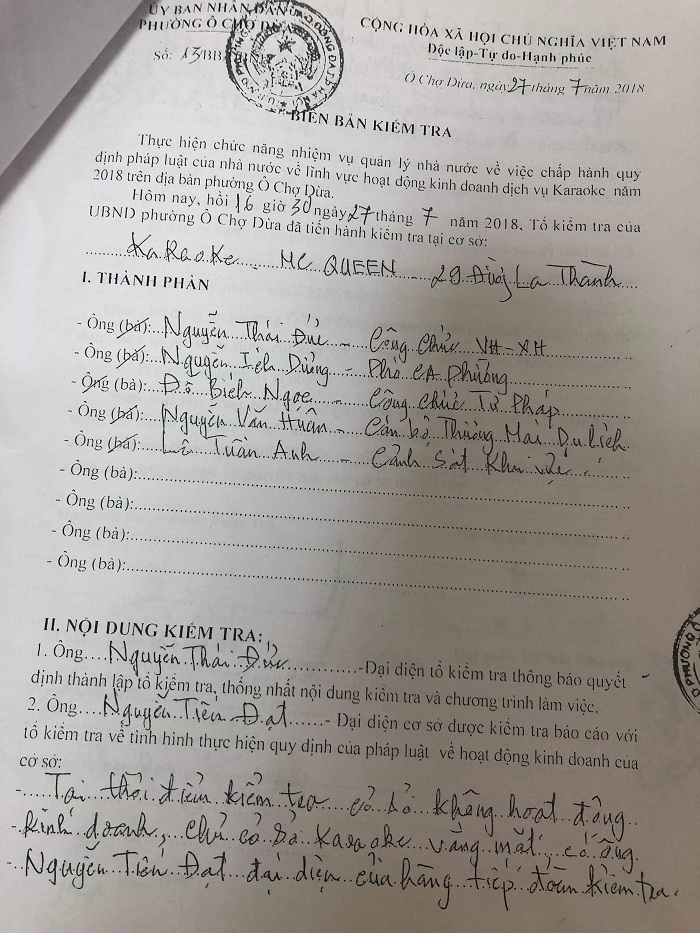 ỦY BAN NHÂN DÂN
PHƯỜNG Ô CHỢ DỪA
CỘNG HÒA XÃ HỘI CHỦ NGHĨA VIỆT NAM
Độc lập-Tự do-Hạnh phúc
Số: 13/BB
Ô Chợ Dừa, ngày 27 tháng 7 năm 2018
BIÊN BẢN KIỂM TRA
Thực hiện chức năng nhiệm vụ quản lý nhà nước về việc chấp hành quy
định pháp luật của nhà nước về lĩnh vực hoạt động kinh doanh dịch vụ Karaoke năm
2018 trên địa bàn phường Ô Chợ Dừa.
Hôm nay, hồi 16 giờ 30 ngày 27 tháng 7 năm 2018, Tổ kiểm tra của
UBND phường Ô Chợ Dừa đã tiến hành kiểm tra tại cơ sở:
KaRaoKe MC QUEEN - 29 Đường La Thành
I. THÀNH PHẦN
- Ông (bà): Nguyễn Thái Đức - Công chức VH-XH
- Ông (bà): Nguyễn Ích Dũng - Phó CA phường
- Ông (bà): Đỗ Bích Ngọc - Công chức Tư Pháp
- Ông (bà): Nguyễn Văn Huân - Cán bộ Thương Mại Du lịch
- Ông (bà): Lê Tuấn Anh - Cảnh sát Khu vực
- Ông (bà):
- Ông (bà):
- Ông (bà):
- Ông (bà):
II. NỘI DUNG KIỂM TRA:
1. Ông Nguyễn Thái Đức -Đại diện tổ kiểm tra thông báo quyết
định thành lập tổ kiểm tra, thống nhất nội dung kiểm tra và chương trình làm việc.
2. Ông Nguyễn Tiến Đạt - Đại diện cơ sở được kiểm tra báo cáo với
tổ kiểm tra về tình hình thực hiện quy định của pháp luật về hoạt động kinh doanh của
cơ sở:
- Tại thời điểm kiểm tra cơ sở không hoạt động
- kinh doanh, chủ cơ sở karaoke vắng mặt, có ông
- Nguyễn Tiến Đạt đại diện cửa hàng tiếp đoàn kiểm tra.